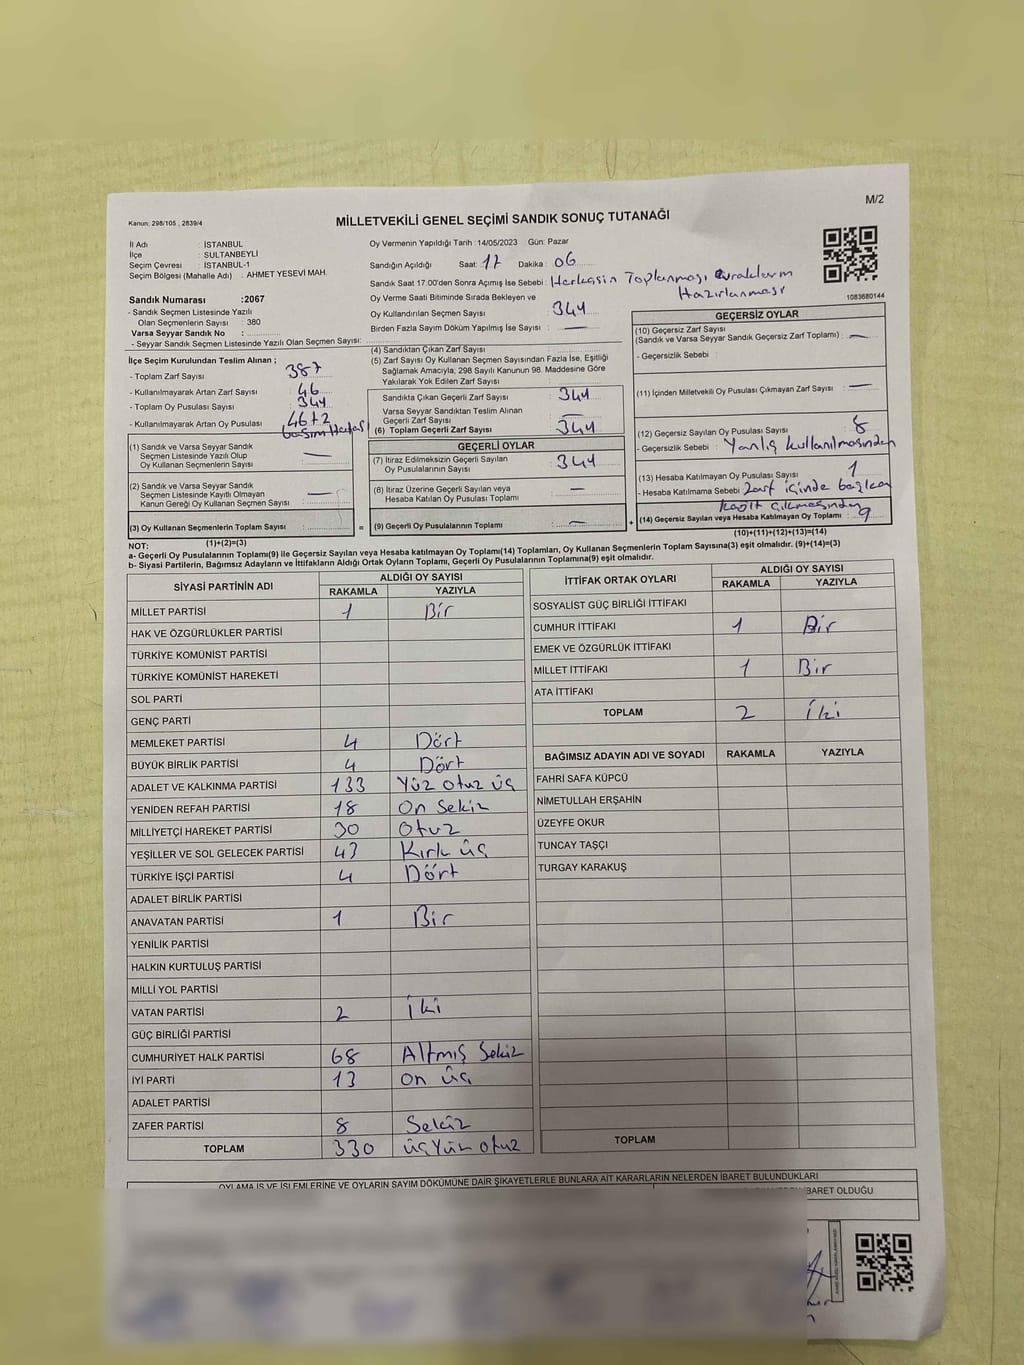 M/2
Kanun: 298/105 , 2839/4
MİLLETVEKİLİ GENEL SEÇİMİ SANDIK SONUÇ TUTANAĞI
İl Adı : İSTANBUL
İlçe : SULTANBEYLİ
Seçim Çevresi : İSTANBUL-1
Seçim Bölgesi (Mahalle Adı) : AHMET YESEVİ MAH.
Sandık Numarası :2067
- Sandık Seçmen Listesinde Yazılı
Olan Seçmenlerin Sayısı : 380
Varsa Seyyar Sandık No :
- Seyyar Sandık Seçmen Listesinde Yazılı Olan Seçmen Sayısı:
Oy Vermenin Yapıldığı Tarih : 14/05/2023 Gün: Pazar
Sandığın Açıldığı Saat: 17 Dakika : 06
Sandık Saat 17.00'den Sonra Açımış İse Sebebi : Herkesin Toplanması Evrakların
Hazırlanması
Oy Verme Saati Bitiminde Sırada Bekleyen ve
Oy Kullandırılan Seçmen Sayısı : 344
Birden Fazla Sayım Döküm Yapılmış İse Sayısı : —
1083680144
İlçe Seçim Kurulundan Teslim Alınan ;
- Toplam Zarf Sayısı : 387
- Kullanılmayarak Artan Zarf Sayısı : 46
- Toplam Oy Pusulası Sayısı : 344
- Kullanılmayarak Artan Oy Pusulası : 46+2
basım Hatası
(1) Sandık ve Varsa Seyyar Sandık
Seçmen Listesinde Yazılı Olup
Oy Kullanan Seçmenlerin Sayısı : —
(2) Sandık ve Varsa Seyyar Sandık
Seçmen Listesinde Kayıtlı Olmayan
Kanun Gereği Oy Kullanan Seçmen Sayısı : —
(3) Oy Kullanan Seçmenlerin Toplam Sayısı :
(1)+(2)=(3)
(4) Sandıktan Çıkan Zarf Sayısı :
(5) Zarf Sayısı Oy Kullanan Seçmen Sayısından Fazla İse, Eşitliği
Sağlamak Amacıyla; 298 Sayılı Kanunun 98. Maddesine Göre
Yakılarak Yok Edilen Zarf Sayısı :
Sandıkta Çıkan Geçerli Zarf Sayısı : 344
Varsa Seyyar Sandıktan Teslim Alınan
Geçerli Zarf Sayısı : —
(6) Toplam Geçerli Zarf Sayısı : 344
GEÇERLİ OYLAR
(7) İtiraz Edilmeksizin Geçerli Sayılan
Oy Pusulalarının Sayısı : 344
(8) İtiraz Üzerine Geçerli Sayılan veya
Hesaba Katılan Oy Pusulaları Toplamı : —
= (9) Geçerli Oy Pusulalarının Toplamı : — +
GEÇERSİZ OYLAR
(10) Geçersiz Zarf Sayısı
(Sandık ve Varsa Seyyar Sandık Geçersiz Zarf Toplamı) : —
- Geçersizlik Sebebi :
(11) İçinden Milletvekili Oy Pusulası Çıkmayan Zarf Sayısı : —
(12) Geçersiz Sayılan Oy Pusulası Sayısı : 8
- Geçersizlik Sebebi : Yanlış kullanılmasından
(13) Hesaba Katılmayan Oy Pusulası Sayısı : 1
- Hesaba Katılmama Sebebi : Zarf içinde başka
kağıt çıkmasından
(14) Geçersiz Sayılan veya Hesaba Katılmayan Oy Toplamı : 9
(10)+(11)+(12)+(13)=(14)
NOT:
a- Geçerli Oy Pusulalarının Toplamı(9) ile Geçersiz Sayılan veya Hesaba katılmayan Oy Toplamı(14) Toplamları, Oy Kullanan Seçmenlerin Toplam Sayısına(3) eşit olmalıdır. (9)+(14)=(3)
b- Siyasi Partilerin, Bağımsız Adayların ve İttifakların Aldığı Ortak Oyların Toplamı, Geçerli Oy Pusulalarının Toplamına(9) eşit olmalıdır.
SİYASİ PARTİNİN ADI ALDIĞI OY SAYISI
RAKAMLA YAZIYLA
MİLLET PARTİSİ 1 Bir
HAK VE ÖZGÜRLÜKLER PARTİSİ
TÜRKİYE KOMÜNİST PARTİSİ
TÜRKİYE KOMÜNİST HAREKETİ
SOL PARTİ
GENÇ PARTİ
MEMLEKET PARTİSİ 4 Dört
BÜYÜK BİRLİK PARTİSİ 4 Dört
ADALET VE KALKINMA PARTİSİ 133 Yüz otuz üç
YENİDEN REFAH PARTİSİ 18 On Sekiz
MİLLİYETÇİ HAREKET PARTİSİ 30 Otuz
YEŞİLLER VE SOL GELECEK PARTİSİ 43 Kırk üç
TÜRKİYE İŞÇİ PARTİSİ 4 Dört
ADALET BİRLİK PARTİSİ
ANAVATAN PARTİSİ 1 Bir
YENİLİK PARTİSİ
HALKIN KURTULUŞ PARTİSİ
MİLLİ YOL PARTİSİ
VATAN PARTİSİ 2 İki
GÜÇ BİRLİĞİ PARTİSİ
CUMHURİYET HALK PARTİSİ 68 Altmış Sekiz
İYİ PARTİ 13 On üç
ADALET PARTİSİ
ZAFER PARTİSİ 8 Sekiz
TOPLAM 330 üçYüz otuz
İTTİFAK ORTAK OYLARI ALDIĞI OY SAYISI
RAKAMLA YAZIYLA
SOSYALİST GÜÇ BİRLİĞİ İTTİFAKI
CUMHUR İTTİFAKI 1 Bir
EMEK VE ÖZGÜRLÜK İTTİFAKI
MİLLET İTTİFAKI 1 Bir
ATA İTTİFAKI
TOPLAM 2 İki
BAĞIMSIZ ADAYIN ADI VE SOYADI RAKAMLA YAZIYLA
FAHRİ SAFA KÜPCÜ
NİMETULLAH ERŞAHİN
ÜZEYFE OKUR
TUNCAY TAŞÇI
TURGAY KARAKUŞ
TOPLAM
OYLAMA İŞ VE İŞLEMLERİNE VE OYLARIN SAYIM DÖKÜMÜNE DAİR ŞİKAYETLERLE BUNLARA AİT KARARLARIN NELERDEN İBARET BULUNDUKLARI
İBARET OLDUĞU